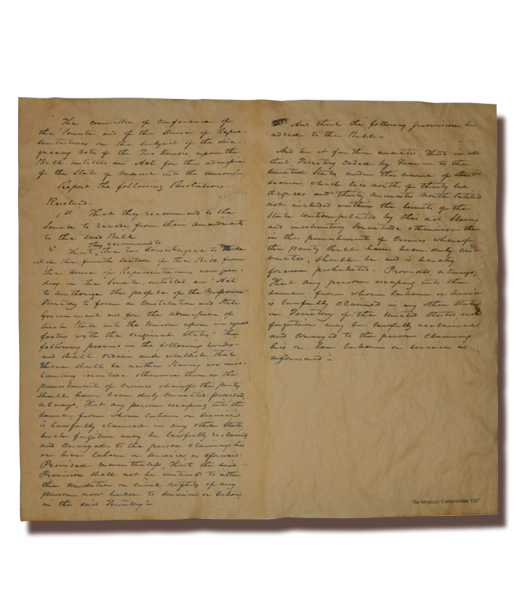 The committee of conference of
the Senate and of the House of Repre-
sentatives on the subject of the disa-
greeing votes of the Two Houses, upon the
Bill entitled an Act for the admission
of the State of Maine into the Union
Report the following Resolution.
Resolved.
1st That they recommend to the
Senate to recede from their amendments
to the said Bill
they recommend to
2d That the two Houses agree to
out of the fourth section of the Bill from
the House of Representatives now pen-
ding in the Senate, entitled an "Act
to authorize the people of the Missouri
Territory to form a Constitution and State
Government and for the admission of
such State into the Union upon an equal
footing with the original States" the
following proviso in the following words-
and shall ordain and establish that
there shall be neither Slavery nor invo-
luntary servitude otherwise than in the
punishment of crimes whereof the party
shall have been duly convicted, provided
always, That any person escaping into the
same, from whom labour or service
is lawfully claimed in any other State
such fugitive may be lawfully reclaimed
and conveyed to the person claiming his
or her labour or service as aforesaid:
Provided nevertheless that the said
Provision shall not be construed to alter
the condition or civil rights of any
person now held to service or labour
in the said Territory"-
And that the following provision be
added to the Bill.
And be it further enacted, That in all
that Territory ceded by France to the
United States under the name of
which lies north of thirty six
degrees and thirty minutes north latitude
not included within the limits of the
State contemplated by this act, Slavery
and involuntary servitude otherwise than
in the punishment of crimes whereof
the party shall have been duly con-
victed, shall be and is hereby
forever prohibited. Provided always,
That any person escaping into the
same, from whom labour or service
is lawfully claimed in any other State
or Territory of the United States such
fugitive may be lawfully reclaimed
and conveyed to the person claiming
his or her labour or service as
aforesaid-